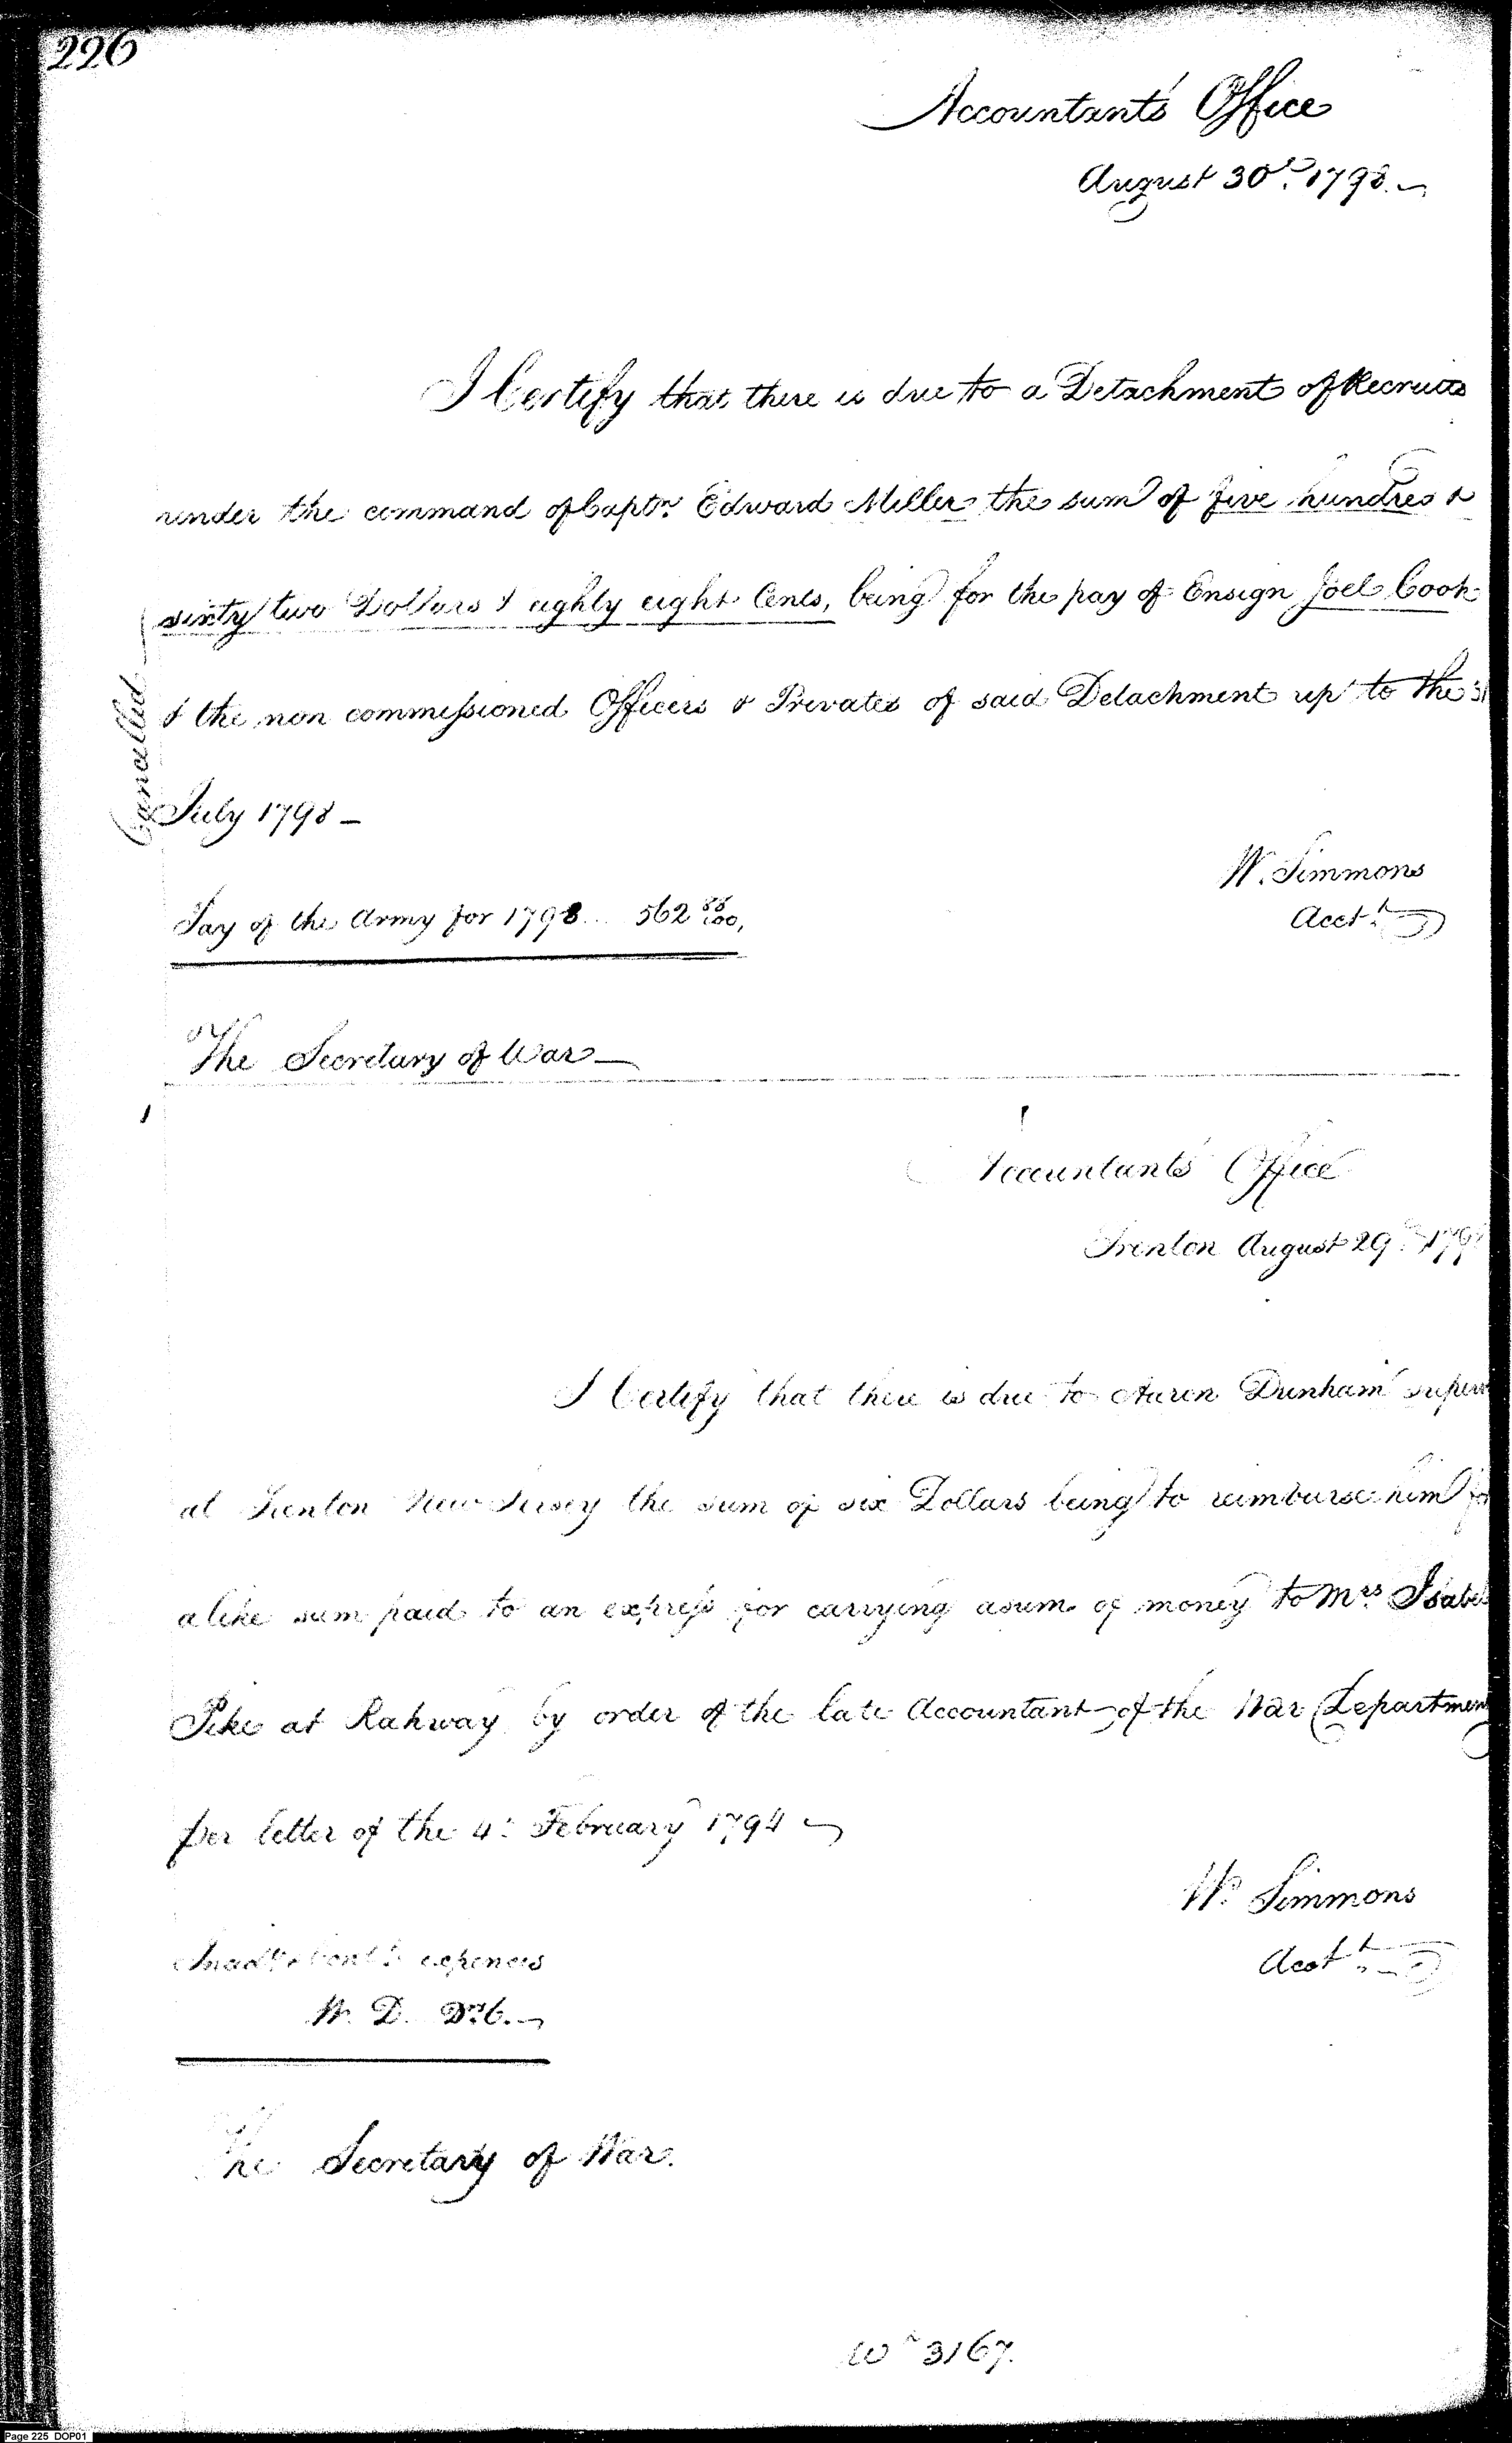 226
Accountants Office
August 30th 1798.
I Certify that there is due to a Detachment of Recruits
under the command of Captn. Edward Miller the sum of five hundred &
sixty two Dollars & eighty eight Cents, being for the pay of Ensign Joel Cook
& the non commissioned Officers & Privates of said Detachment up to the 31
July 1798 —
Cancelled
W. Simmons
Acct.t
Pay of the Army for 1798... 562 88/100,
The Secretary of War —
Accountants Office
Trenton August 29th 179
I Certify that there is due to Aaron Dunham superv
at Trenton New Jersey the sum of six Dollars being to reimburse him fo
a like sum paid to an express for carrying a sum of money to Mrs. Isabel
Pike at Rahway by order of the late Accountant of the War Department
per letter of the 4th February 1794
Wm Simmons
Acct.t
expences
W. D. 6.
The Secretary of War.
3167.
Page 225 DOP01